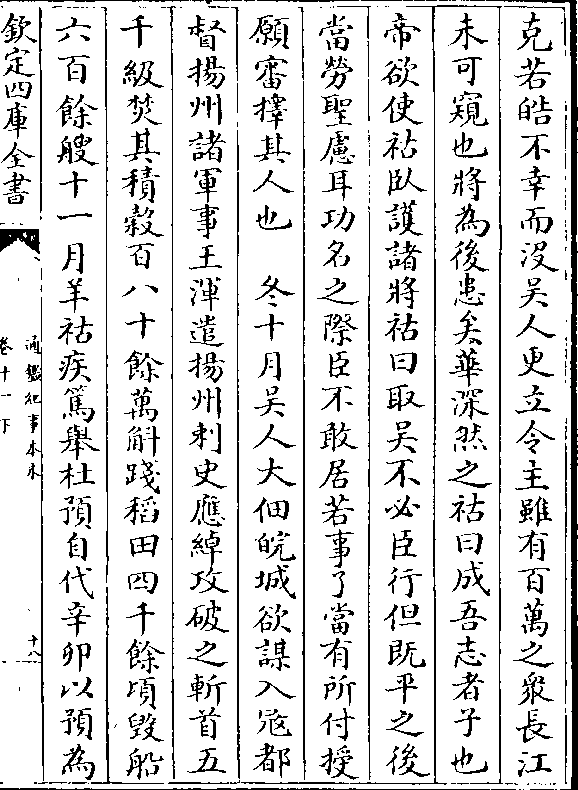 克若皓不幸而没吳人更立令主雖有百萬之衆長江
未可窺也將為後患矣華深然之祜曰成吾志者子也
帝欲使祜卧護諸將祜曰取吳不必臣行但既平之後
當勞聖慮耳功名之際臣不敢居若事了當有所付授
願審擇其人也　冬十月吳人大佃皖城欲謀入寇都
督揚州諸軍事王渾遣揚州刺史應綽攻破之斬首五
千級焚其積穀百八十餘萬斛踐稻田四千餘頃毀船
六百餘艘十一月羊祜疾篤舉杜預自代辛卯以預為
欽定四庫全書
通鑑紀事本末
卷十一下
十八